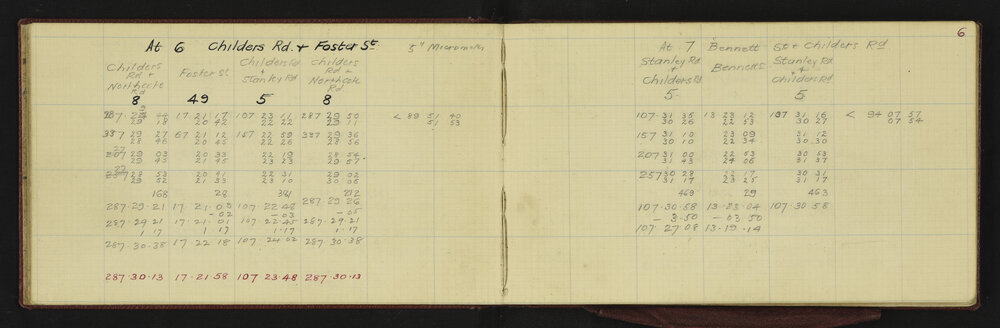 At 6 Childers Rd. & Foster St. 5" Micrometer
Childers Rd & Northcote Rd Foster St. Childers Rd & Stanley Rd Childers Rd & Northcote Rd
8 49 5 8
17 21 17 107 23 11 287 29 50 < 89 51 40
29 18 20 42 22 22 29 11 51 53
337 29 27 67 21 12 157 22 59 337 29 36
28 46 20 45 22 26 28 56
29 03 20 33 22 19 28 54
29 43 21 45 23 23 29 57
28 53 20 41 22 31 29 02
29 52 21 33 23 10 30 06
168 28 381 212
287-29-21 17-21-03 107-22-48 287 29 26
-02 -03 -05
287-29-21 17-21-01 107-22-45 287-29-21
1 17 1 17 1.17 1 17
287-30-38 17 22 18 107 24 02 287 30 38
287-30-13 17-21-58 107 23-48 287-30-13
6
At 7 Bennett St & Childers Rd
Stanley Rd & Childers Rd Bennett St Stanley Rd & Childers Rd
5 5
107-31 35 13 23 12 107 31 16 < 94 07 57
30 26 22 53 30 27 07 54
157 31 10 23 09 31 12
30 10 22 34 30 30
207 31 00 22 53 30 53
31 43 24 06 31 37
257 30 28 22 17 30 31
31 17 23 25 31 17
469 29 463
107-30-58 13-23-04 107-30-58
- 3-50 -03 50
107-27-08 13-19-14